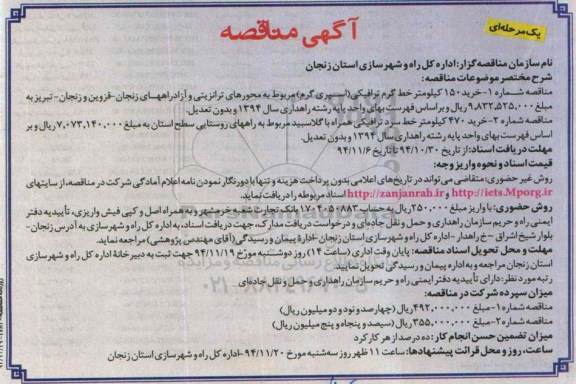 یک مرحله‌ای
آگهی مناقصه
نام سازمان مناقصه گزار: اداره کل راه و شهرسازی استان زنجان
شرح مختصر موضوعات مناقصه:
مناقصه شماره ۱-خرید ۱۵۰ کیلومتر خط گرم ترافیکی (اسپری گرم) مربوط به محورهای ترانزیتی و آزادراههای زنجان-قزوین و زنجان-تبریز به
مبلغ ۹,۸۳۲,۵۲۵,۰۰۰ ریال و براساس فهرست بهای واحد پایه رشته راهداری سال ۱۳۹۴ و بدون تعدیل.
مناقصه شماره ۲-خرید ۴۷۰ کیلومتر خط سرد ترافیکی همراه با گلاسبید مربوط به راههای روستایی سطح استان به مبلغ ۷,۰۷۳,۱۴۰,۰۰۰ ریال و بر
اساس فهرست بهای واحد پایه رشته راهداری سال ۱۳۹۴ و بدون تعدیل.
مهلت دریافت اسناد: از تاریخ ۹۴/۱۰/۳۰ تا تاریخ ۹۴/۱۱/۶
قیمت اسناد و نحوه واریز وجه:
روش غیر حضوری: متقاضی می‌تواند در تاریخ‌های اعلامی بدون پرداخت هزینه و تنها با دورنگار نمودن نامه اعلام آمادگی شرکت در مناقصه، از سایتهای
http://iets.Mporg.ir و http://zanjanrah.ir اسناد مربوطه را دریافت نماید.
روش حضوری: با واریز مبلغ ۲۵۰,۰۰۰ ریال به حساب ۱۷۰۲۰۵۰۸۸۳ بانک تجارت شعبه خرمشهر و به همراه اصل و کپی فیش واریزی، تأییدیه دفتر
ایمنی راه و حریم سازمان راهداری و حمل و نقل جاده‌ای و درخواست دریافت مدارک، جهت دریافت اسناد، به اداره کل راه و شهرسازی به آدرس زنجان-
بلوار شیخ اشراق -خ راهدار-اداره کل راه و شهرسازی استان زنجان-اداره پیمان و رسیدگی (آقای مهندس پژوهشی) مراجعه نماید.
مهلت و محل تحویل اسناد مناقصه: پایان وقت اداری (ساعت ۱۴) روز دوشنبه مورخ ۹۴/۱۱/۱۹ جهت ثبت به دبیرخانه اداره کل راه و شهرسازی
استان زنجان مراجعه و به اداره پیمان و رسیدگی تحویل نمایید.
رتبه مورد نظر: دارای تأییدیه دفتر ایمنی راه و حریم سازمان راهداری و حمل و نقل جاده‌ای
میزان سپرده شرکت در مناقصه:
مناقصه شماره ۱-مبلغ ۴۹۲,۰۰۰,۰۰۰ ریال (چهارصد و نود و دو میلیون ریال)
مناقصه شماره ۲-مبلغ ۳۵۵,۰۰۰,۰۰۰ ریال (سیصد و پنجاه و پنج میلیون ریال)
میزان تضمین حسن انجام کار: ده درصد از هر کارکرد
ساعت، روز و محل قرائت پیشنهادها: ساعت ۱۱ ظهر روز سه‌شنبه مورخ ۹۴/۱۱/۲۰-اداره کل راه و شهرسازی استان زنجان